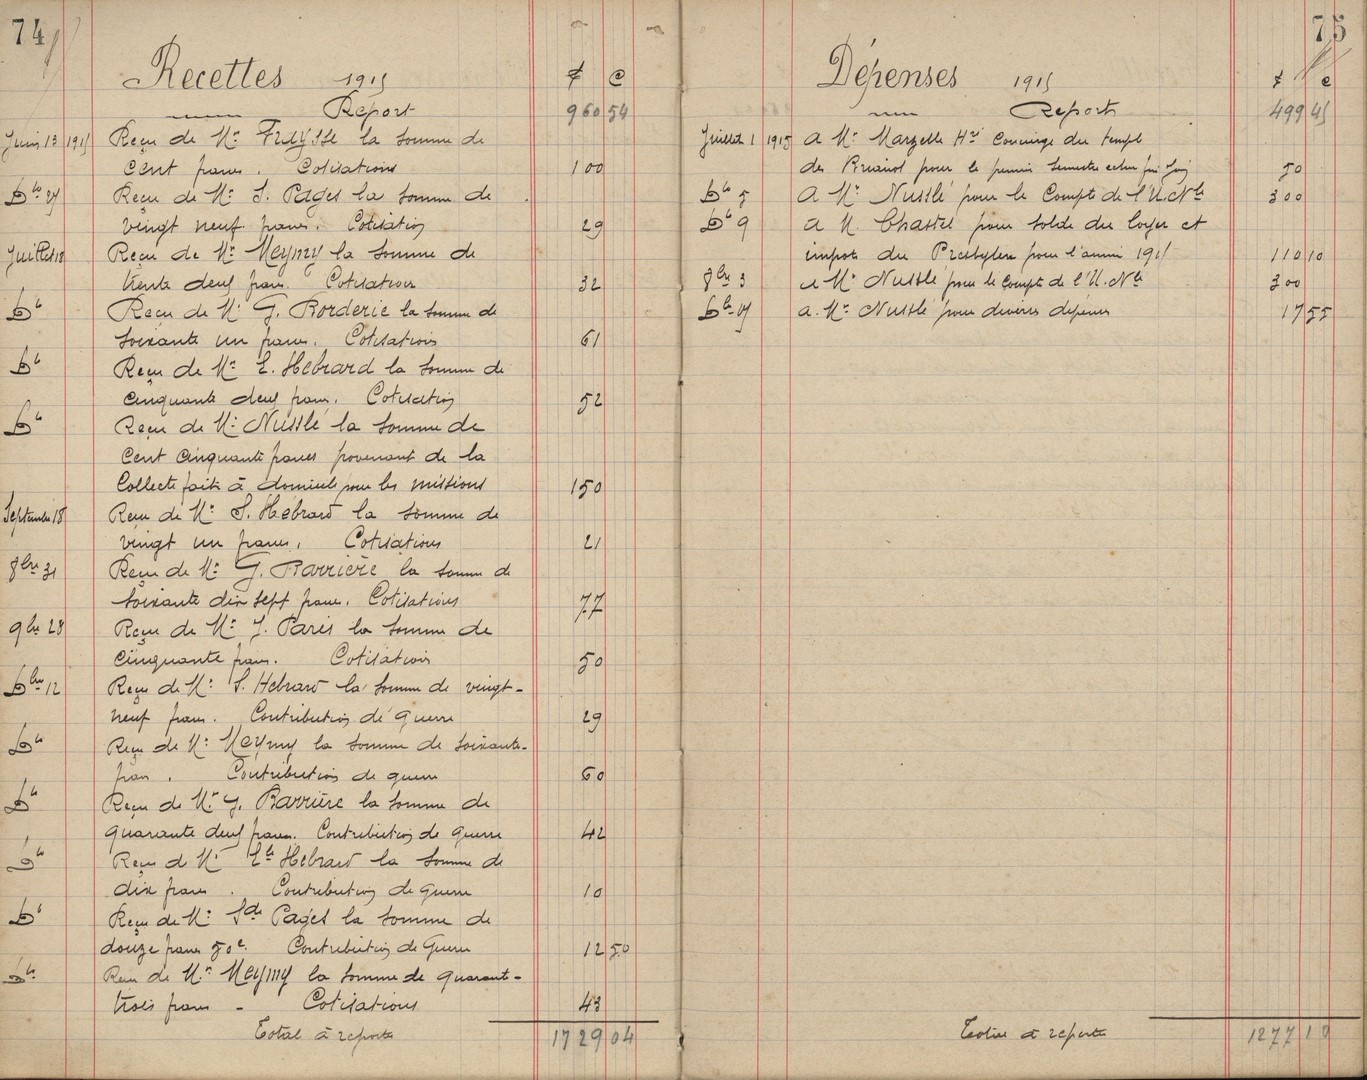 74
Recettes 1915 f c
Report 960 54
Juin 13 1915 Reçu de Mr Fraysse la somme de
cent francs. Cotisations 100
Do 27 Reçu de Mr S. Pagès la somme de
vingt neuf francs. Cotisation 29
Juillet 18 Reçu de Mr Meymy la somme de
trente deux francs. Cotisation 32
Do Reçu de Mr G. Borderie la somme de
soixante un francs. Cotisations 61
Do Reçu de Mr E. Hébrard la somme de
cinquante deux francs. Cotisation 52
Do Reçu de Mr Nusslé la somme de
cent cinquante francs provenant de la
Collecte faite à domicile pour les missions 150
Septembre 18 Reçu de Mr S. Hébrard la somme de
vingt un francs. Cotisations 21
8bre 31 Reçu de Mr G. Barrière la somme de
soixante dix sept francs. Cotisations 77
9bre 28 Reçu de Mr J. Paris la somme de
cinquante francs. Cotisation 50
Dbre 12 Reçu de Mr S. Hébrard la somme de vingt-
neuf francs. Contribution de guerre 29
Do Reçu de Mr Meymy la somme de soixante-
francs. Contribution de guerre 60
Do Reçu de Mr G. Barrière la somme de
quarante deux francs. Contribution de guerre 42
Do Reçu de Mr Ele Hébrard la somme de
dix francs. Contribution de guerre 10
Do Reçu de Mr Sde Pagès la somme de
douze francs 50c. Contribution de Guerre 12 50
Do Reçu de Mr Meymy la somme de quarante-
trois francs - Cotisations 43
Total à reporter 1729 04
75
Dépenses 1915 f c
Report 499 45
Juillet 1 1915 a Mr Marzelle Hri Concierge du temple
de Briançt pour le premier semestre echu fin Juin 50
Do 5 a Mr Nusslé pour le Compte de l'U. Nle 300
Do 9 a M. Chastel pour solde du loyer et
impots du Presbytère pour l'année 1915 110 10
8bre 3 a Mr Nusslé pour le Compte de l'U. Nle 300
Dbre a. Mr Nusslé pour divers dépenses 17 55
Total à reporter 1277 10